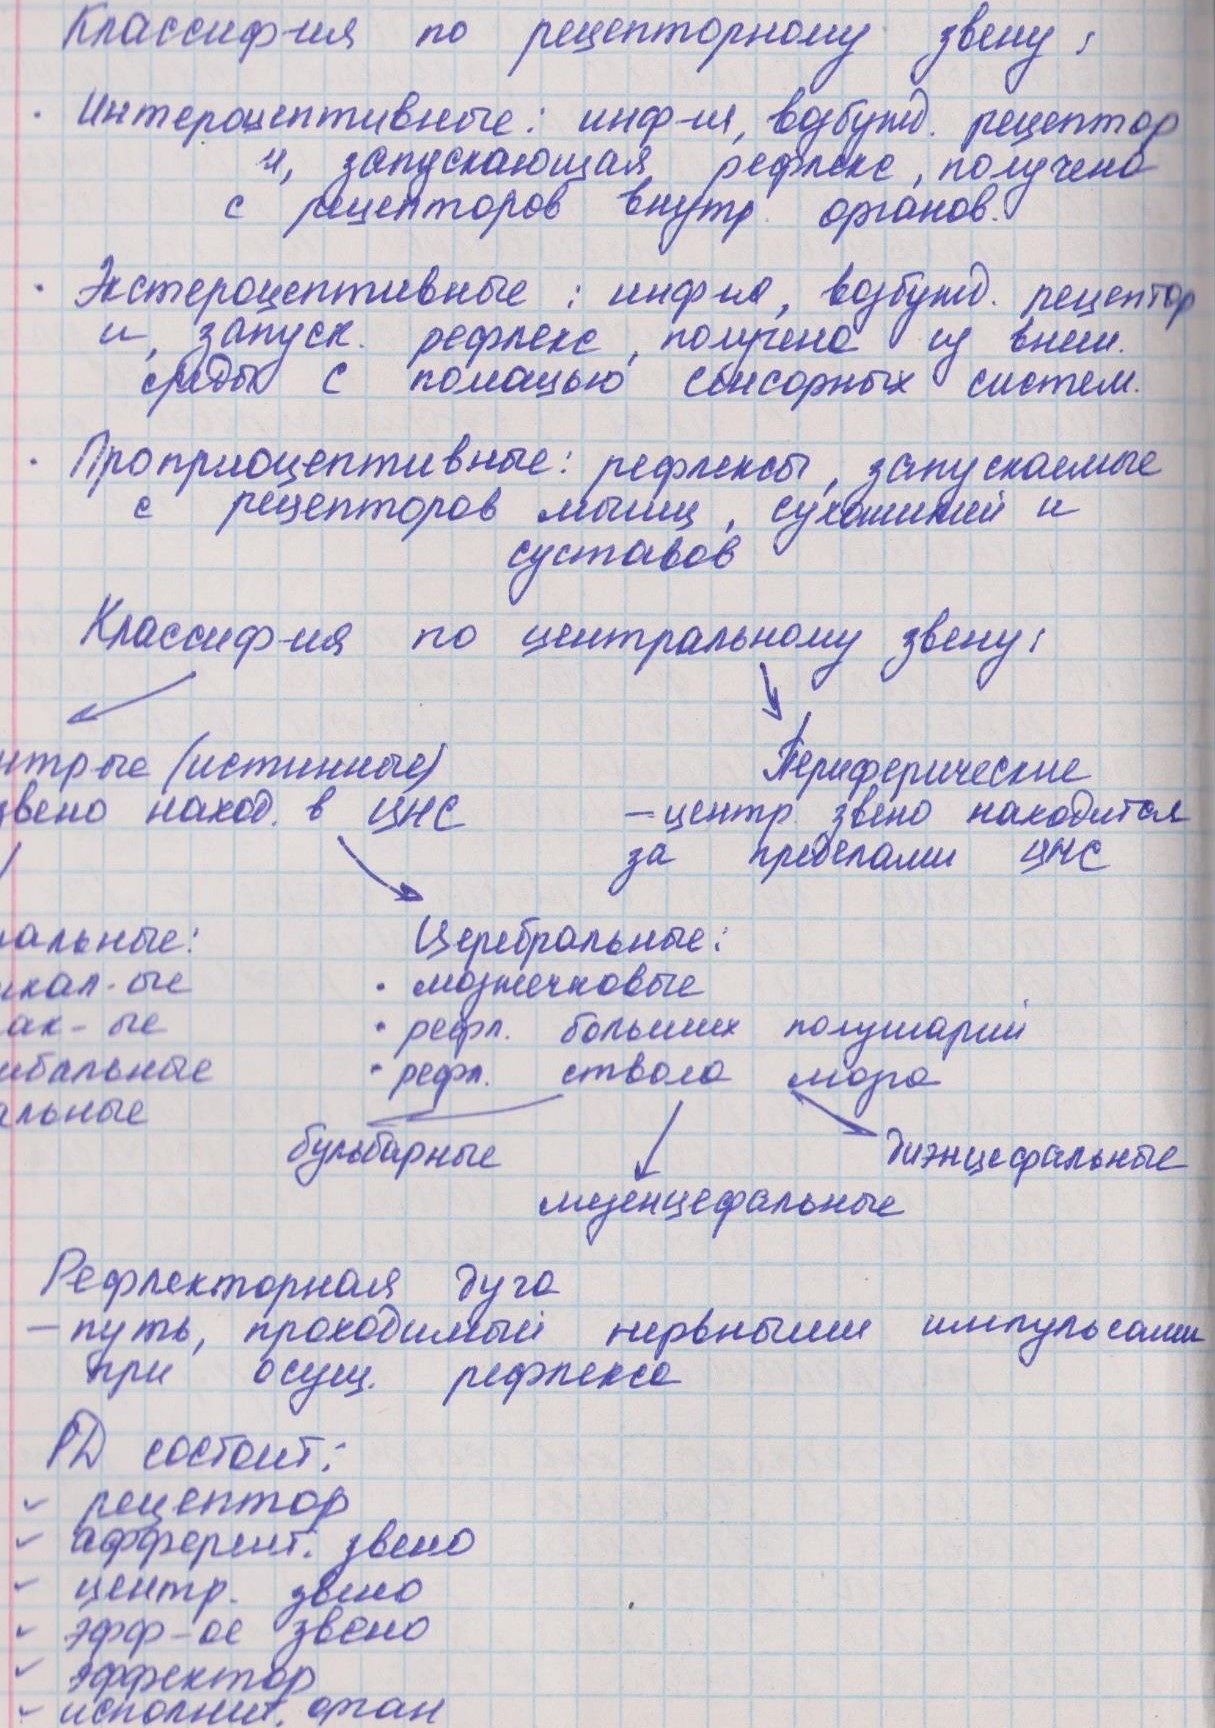 Классиф-ия по рецепторному звену:
· Интероцептивные: инф-ия, возбужд. рецептор
и, запускающая рефлекс, получена
с рецепторов внутр. органов.
· Экстероцептивные: инф-ия, возбужд. рецептор
и, запуск. рефлекс, получена из внеш.
среды с помощью сенсорных систем.
· Проприоцептивные: рефлексы, запускаемые
с рецепторов мышц, сухожилий и
суставов
Классиф-ия по центральному звену:
нтрые (истинные)
звено наход. в ЦНС
Периферические
– центр. звено находится
за пределами ЦНС
нальные:
икал-ые
ак-ые
ибальные
альные
Церебральные:
· мозжечковые
· рефл. больших полушарий
· рефл. ствола мозга
бульбарные
мезенцефальные
диэнцефальные
Рефлекторная дуга
– путь, проходимый нервными импульсами
при осущ. рефлекса
РД состоит:
✓ рецептор
✓ афферент. звено
✓ центр. звено
✓ эфф-ое звено
✓ эффектор
✓ исполнит. орган